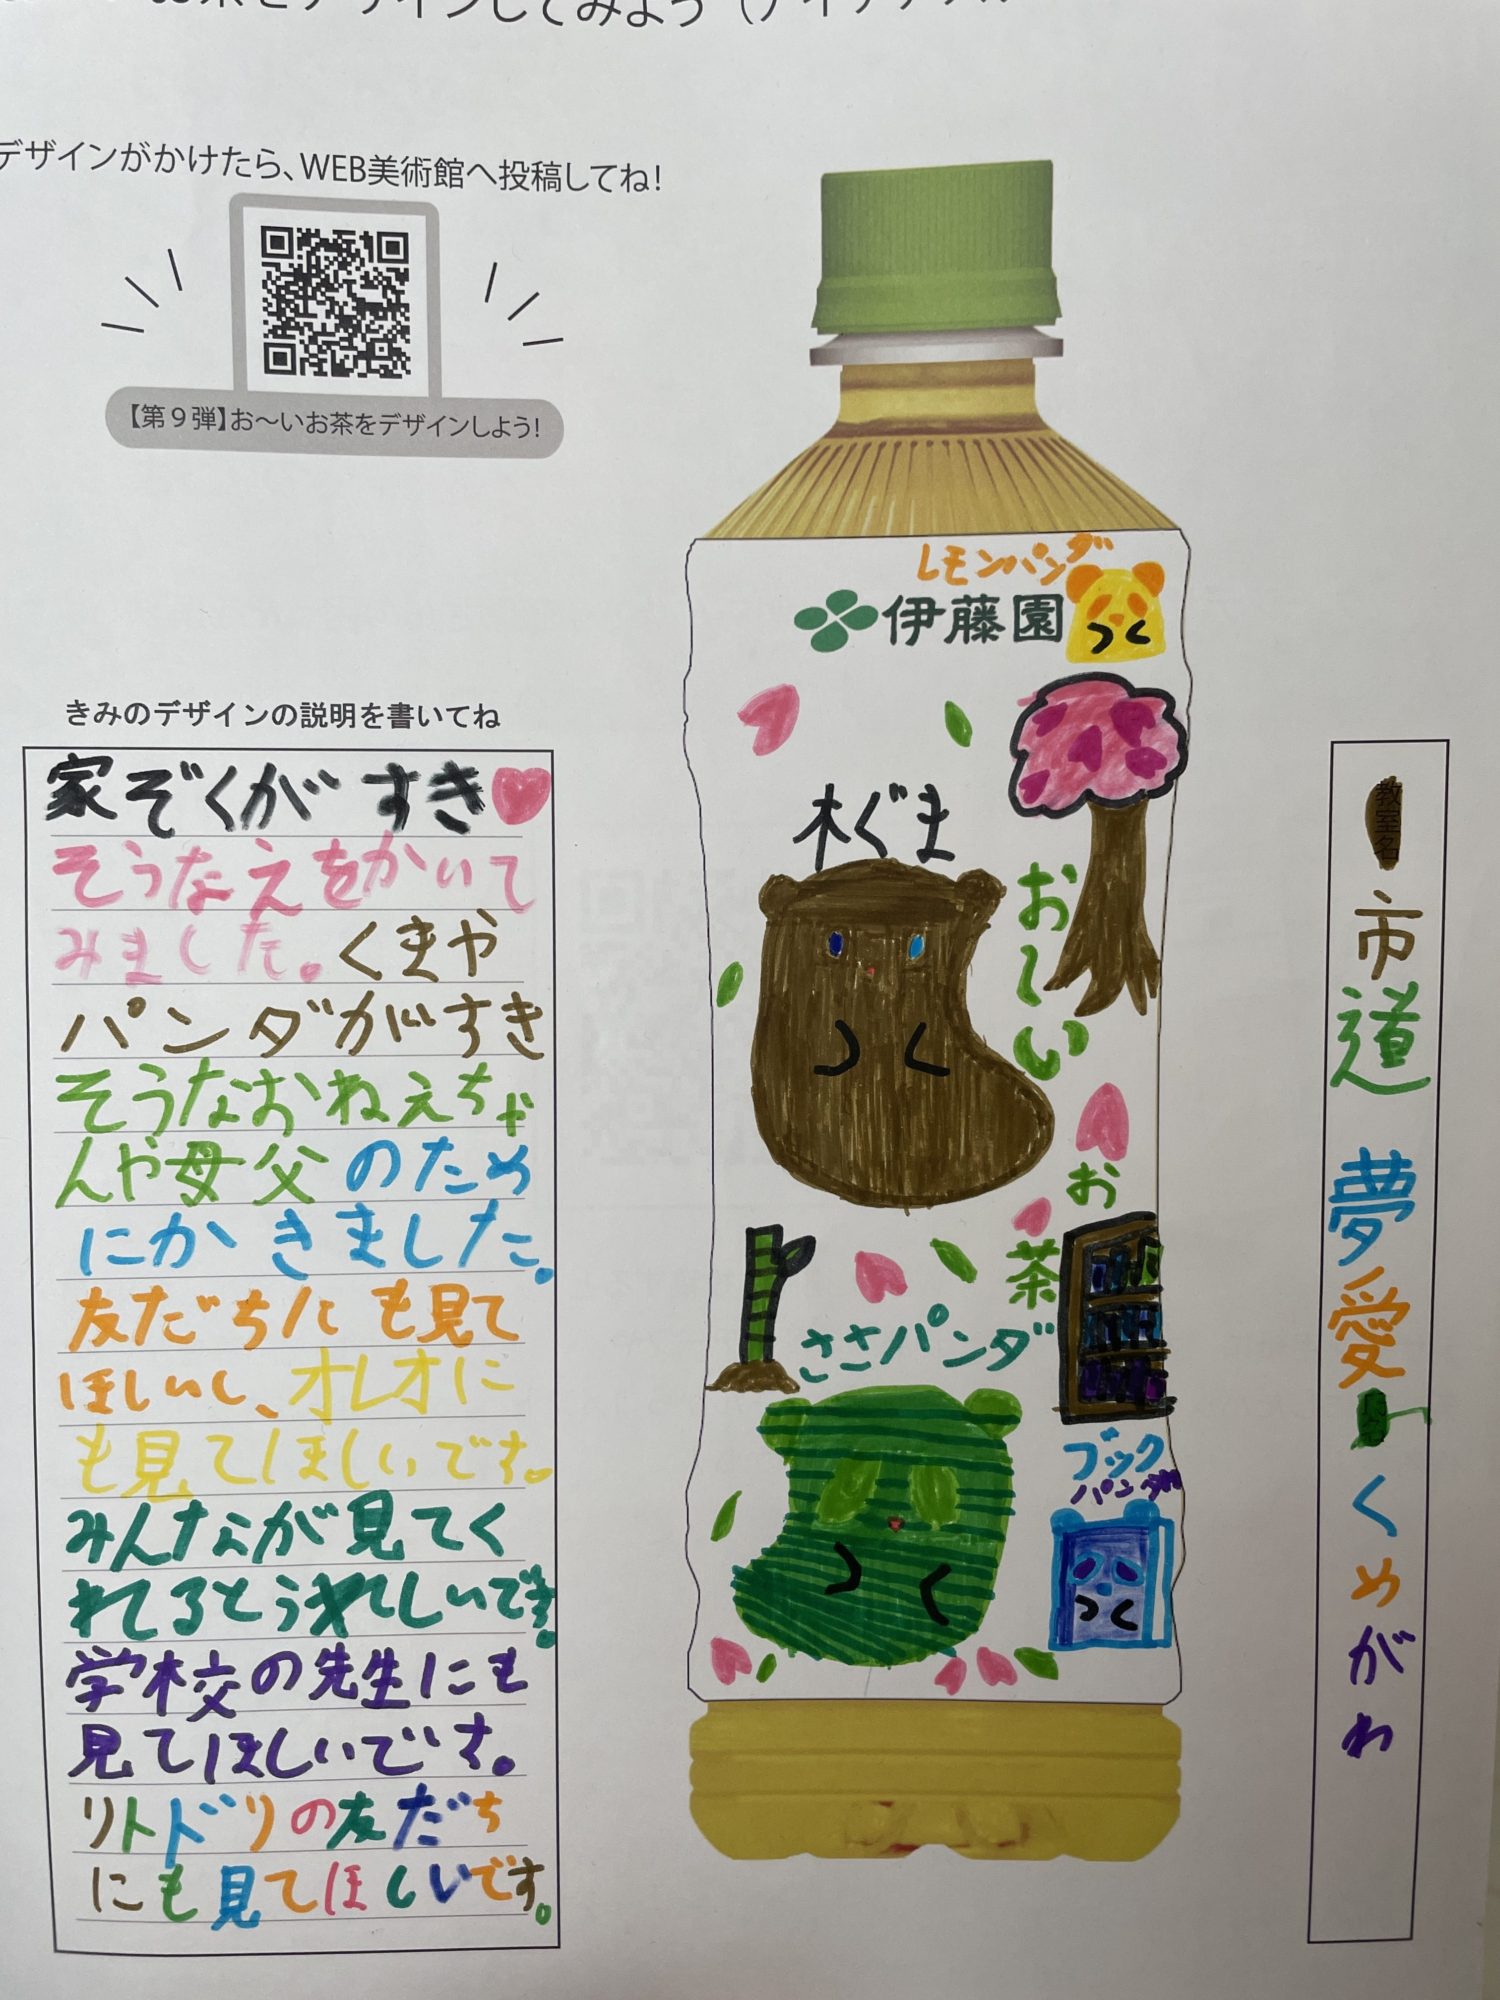 お茶をデザインしてみよう
デザインがかけたら、WEB美術館へ投稿してね!
【第9弾】お～いお茶をデザインしよう!
きみのデザインの説明を書いてね
家ぞくがすき
そうなえをかいて
みました。くまや
パンダがすき
そうなおねえちゃ
んや母父のため
にかきました。
友だちにも見て
ほしいし、オレオに
も見てほしいです。
みんなが見てく
れるとうれしいです。
学校の先生にも
見てほしいです。
リトドリの友だち
にも見てほしいです。
レモンパンダ
伊藤園
木ぐま
お～い
お茶
ささパンダ
ブック
パンダ
教室名
市道 夢愛
くめがわ